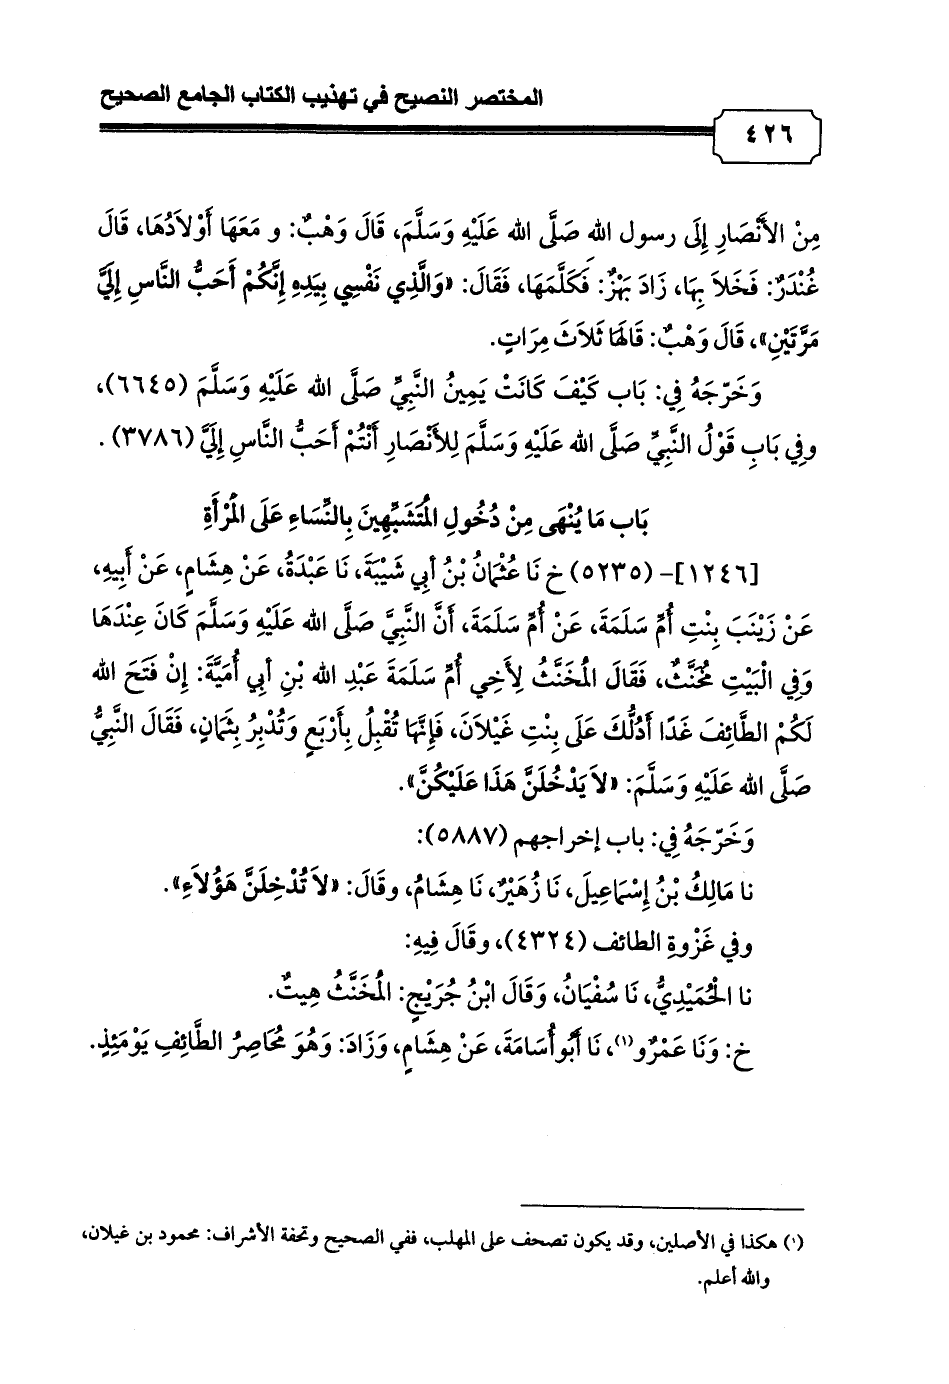 المختصر النصيح في تهذيب الكتاب الجامع الصحيح
٤٢٦
مِنْ الأَنْصَارِ إِلَى رسول الله صَلَّى الله عَلَيْهِ وَسَلَّمَ، قَالَ وَهْبٌ: و مَعَهَا أَوْلاَدُهَا، قَالَ
غُنْدَرٌ: فَخَلاَ بِهَا، زَادَ بَهْزٌ: فَكَلَّمَهَا، فَقَالَ: «وَالَّذِي نَفْسِي بِيَدِهِ إِنَّكُمْ أَحَبُّ النَّاسِ إِلَيَّ
مَرَّتَيْنِ»، قَالَ وَهْبٌ: قَالَهَا ثَلاَثَ مِرَاتٍ.
وَخَرّجَهُ فِي: بَاب كَيْفَ كَانَتْ يَمِينُ النَّبِيِّ صَلَّى الله عَلَيْهِ وَسَلَّمَ (٦٦٤٥)،
وفِي بَابِ قَوْلُ النَّبِيِّ صَلَّى الله عَلَيْهِ وَسَلَّمَ لِلأَنْصَارِ أَنْتُمْ أَحَبُّ النَّاسِ إِلَيَّ (٣٧٨٦).
بَاب مَا يُنْهَى مِنْ دُخُولِ المُتَشَبِّهِينَ بِالنِّسَاءِ عَلَى المْرْأَةِ
[١٢٤٦]- (٥٢٣٥) خ نَا عُثْمَانُ بْنُ أبِي شَيْبَةَ، نَا عَبْدَةُ، عَنْ هِشَامٍ، عَنْ أَبِيهِ،
عَنْ زَيْنَبَ بِنْتِ أُمِّ سَلَمَةَ، عَنْ أُمِّ سَلَمَةَ، أَنَّ النَّبِيَّ صَلَّى الله عَلَيْهِ وَسَلَّمَ كَانَ عِنْدَهَا
وَفِي الْبَيْتِ مُخَنَّثٌ، فَقَالَ الْمُخَنَّثُ لِأَخِي أُمِّ سَلَمَةَ عَبْدِ الله بْنِ أبِي أُمَيَّةَ: إِنْ فَتَحَ الله
لَكُمْ الطَّائِفَ غَدًا أَدُلُّكَ عَلَى بِنْتِ غَيْلاَنَ، فَإِنَّهَا تُقْبِلُ بِأَرْبَعٍ وَتُدْبِرُ بِثَمَانٍ، فَقَالَ النَّبِيُّ
صَلَّى الله عَلَيْهِ وَسَلَّمَ: «لاَ يَدْخُلَنَّ هَذَا عَلَيْكُنَّ».
وَخَرّجَهُ فِي: باب إخراجهم (٥٨٨٧):
نا مَالِكُ بْنُ إِسْمَاعِيلَ، نَا زُهَيْرٌ، نَا هِشَامُ، وقَالَ: «لاَ تُدْخِلَنَّ هَؤُلاَءِ».
وفي غَزْوةِ الطائف (٤٣٢٤)، وقَالَ فِيهِ:
نا الْحُمَيْدِيُّ، نَا سُفْيَانُ، وَقَالَ ابْنُ جُرَيْجٍ: الْمُخَنَّثُ هِيتٌ.
خ: وَنَا عَمْرٌو(١)، نَا أَبُو أُسَامَةَ، عَنْ هِشَامٍ، وَزَادَ: وَهُوَ مُحَاصِرُ الطَّائِفِ يَوْمَئِذٍ.
(١) هكذا في الأصلين، وقد يكون تصحف على المهلب، ففي الصحيح وتحفة الأشراف: محمود بن غيلان،
والله أعلم.